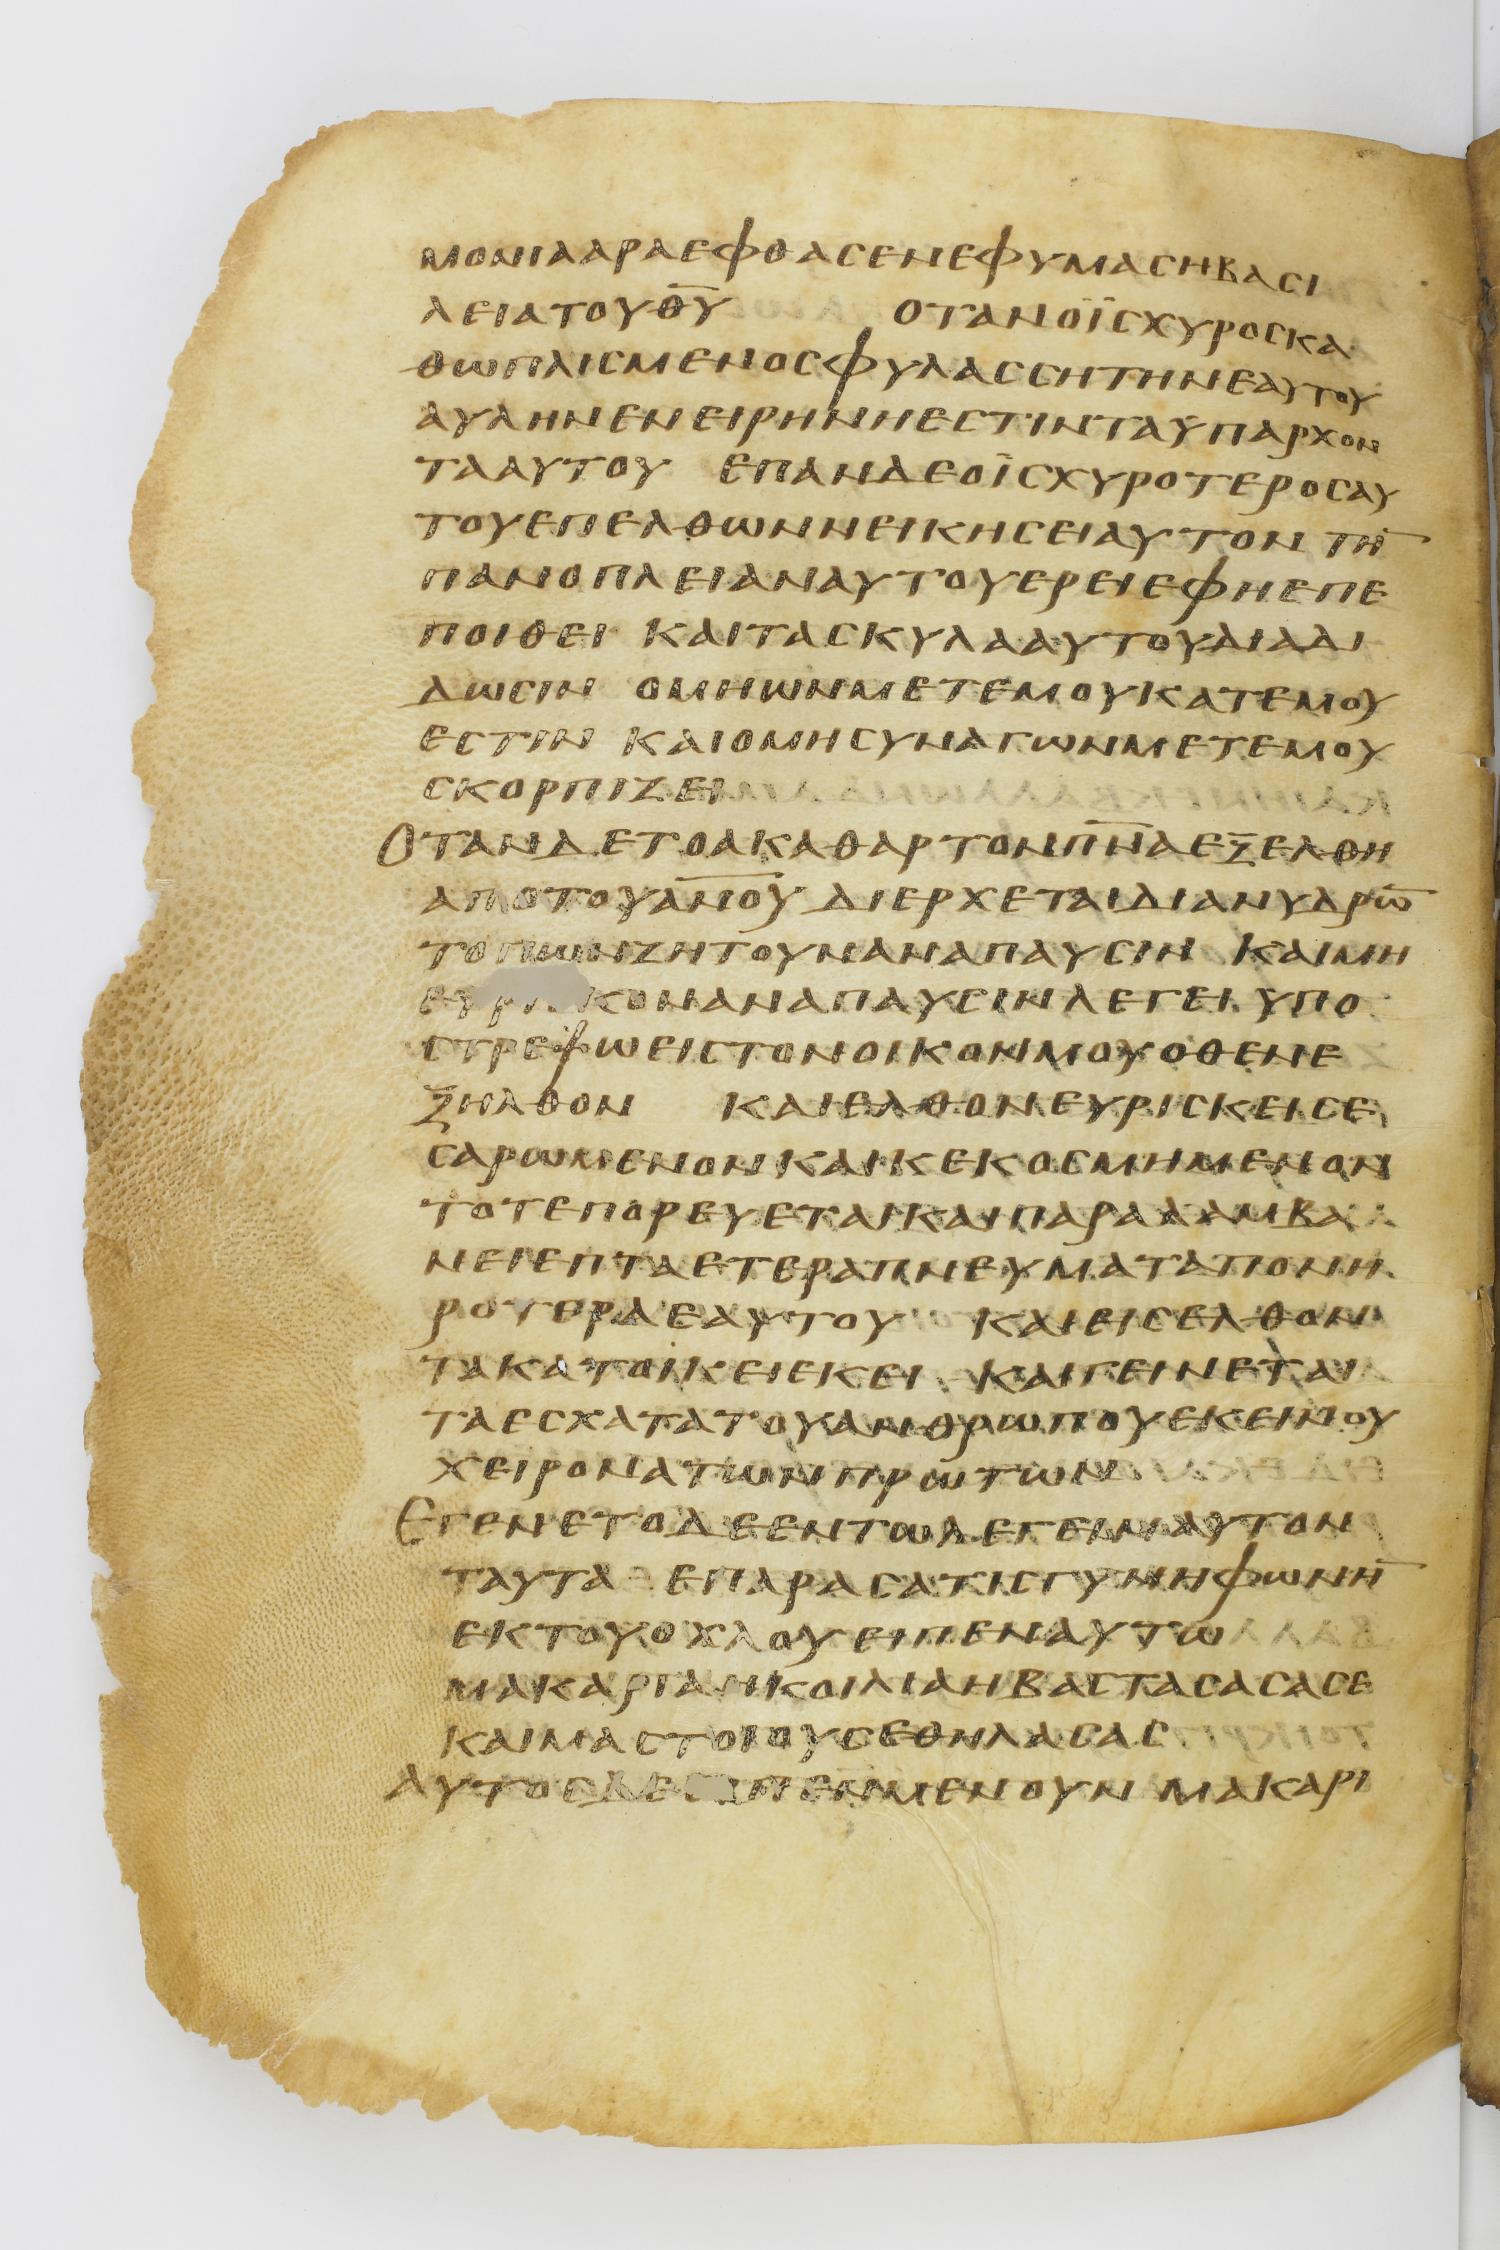 ΜΟΝΙΑΑΡΑΕΦΘΑΣΕΝΕΦΥΜΑΣΗΒΑΣΙ
ΛΕΙΑΤΟΥΘ̅Υ̅ ΟΤΑΝΟΪΣΧΥΡΟΣΚΑ
ΘΩΠΛΙΣΜΕΝΟΣΦΥΛΑΣΣΗΤΗΝΕΑΥΤΟΥ
ΑΥΛΗΝΕΝΕΙΡΗΝΗΕΣΤΙΝΤΑΥΠΑΡΧΟΝ
ΤΑΑΥΤΟΥ ΕΠΑΝΔΕΟΪΣΧΥΡΟΤΕΡΟΣΑΥ
ΤΟΥΕΠΕΛΘΩΝΝΕΙΚΗΣΕΙΑΥΤΟΝ ΤΗ̅
ΠΑΝΟΠΛΕΙΑΝΑΥΤΟΥΕΡΕΙΕΦΗΕΠΕ
ΠΟΙΘΕΙ ΚΑΙΤΑΣΚΥΛΑΑΥΤΟΥΔΙΑΔΙ
ΔΩΣΙΝ ΟΜΗΩΝΜΕΤΕΜΟΥΚΑΤΕΜΟΥ
ΕΣΤΙΝ ΚΑΙΟΜΗΣΥΝΑΓΩΝΜΕΤΕΜΟΥ
ΣΚΟΡΠΙΖΕΙ
ΟΤΑΝΔΕΤΟΑΚΑΘΑΡΤΟΝΠ̅Ν̅ΑΕΞΕΛΘΗ
ΑΠΟΤΟΥΑ̅Ν̅Ο̅Υ̅ ΔΙΕΡΧΕΤΑΙΔΙΑΝΥΔΡΩ̅
ΤΟΠΩΝΖΗΤΟΥΝΑΝΑΠΑΥΣΙΝ ΚΑΙΜΗ
ΕΥΡΙΣΚΟΝΑΝΑΠΑΥΣΙΝΛΕΓΕΙΥΠΟ
ΣΤΡΕΦΩΕΙΣΤΟΝΟΙΚΟΝΜΟΥΟΘΕΝΕ
ΞΗΛΘΟΝ ΚΑΙΕΛΘΟΝΕΥΡΙΣΚΕΙΣΕ
ΣΑΡΩΜΕΝΟΝΚΑΙΚΕΚΟΣΜΗΜΕΝΟΝ
ΤΟΤΕΠΟΡΕΥΕΤΑΙΚΑΙΠΑΡΑΛΑΜΒΑ
ΝΕΙΕΠΤΑΕΤΕΡΑΠΝΕΥΜΑΤΑΠΟΝΗ
ΡΟΤΕΡΑΕΑΥΤΟΥ ΚΑΙΕΙΣΕΛΘΟΝ
ΤΑΚΑΤΟΙΚΕΙΕΚΕΙ ΚΑΙΓΕΙΝΕΤΑΙ
ΤΑΕΣΧΑΤΑΤΟΥΑΝΘΡΩΠΟΥΕΚΕΙΝΟΥ
ΧΕΙΡΟΝΑΤΩΝΠΡΩΤΩΝ
ΕΓΕΝΕΤΟΔΕΕΝΤΩΛΕΓΕΙΝΑΥΤΟΝ
ΤΑΥΤΑ ΕΠΑΡΑΣΑΤΙΣΓΥΝΗΦΩΝΗ̅
ΕΚΤΟΥΟΧΛΟΥΕΙΠΕΝΑΥΤΩ
ΜΑΚΑΡΙΑΗΚΟΙΛΙΑΗΒΑΣΤΑΣΑΣΑΣΕ
ΚΑΙΜΑΣΤΟΙΟΥΣΕΘΗΛΑΣΑΣ
ΑΥΤΟΣΔΕΕΙΠΕΝΜΕΝΟΥΝ ΜΑΚΑΡΙ